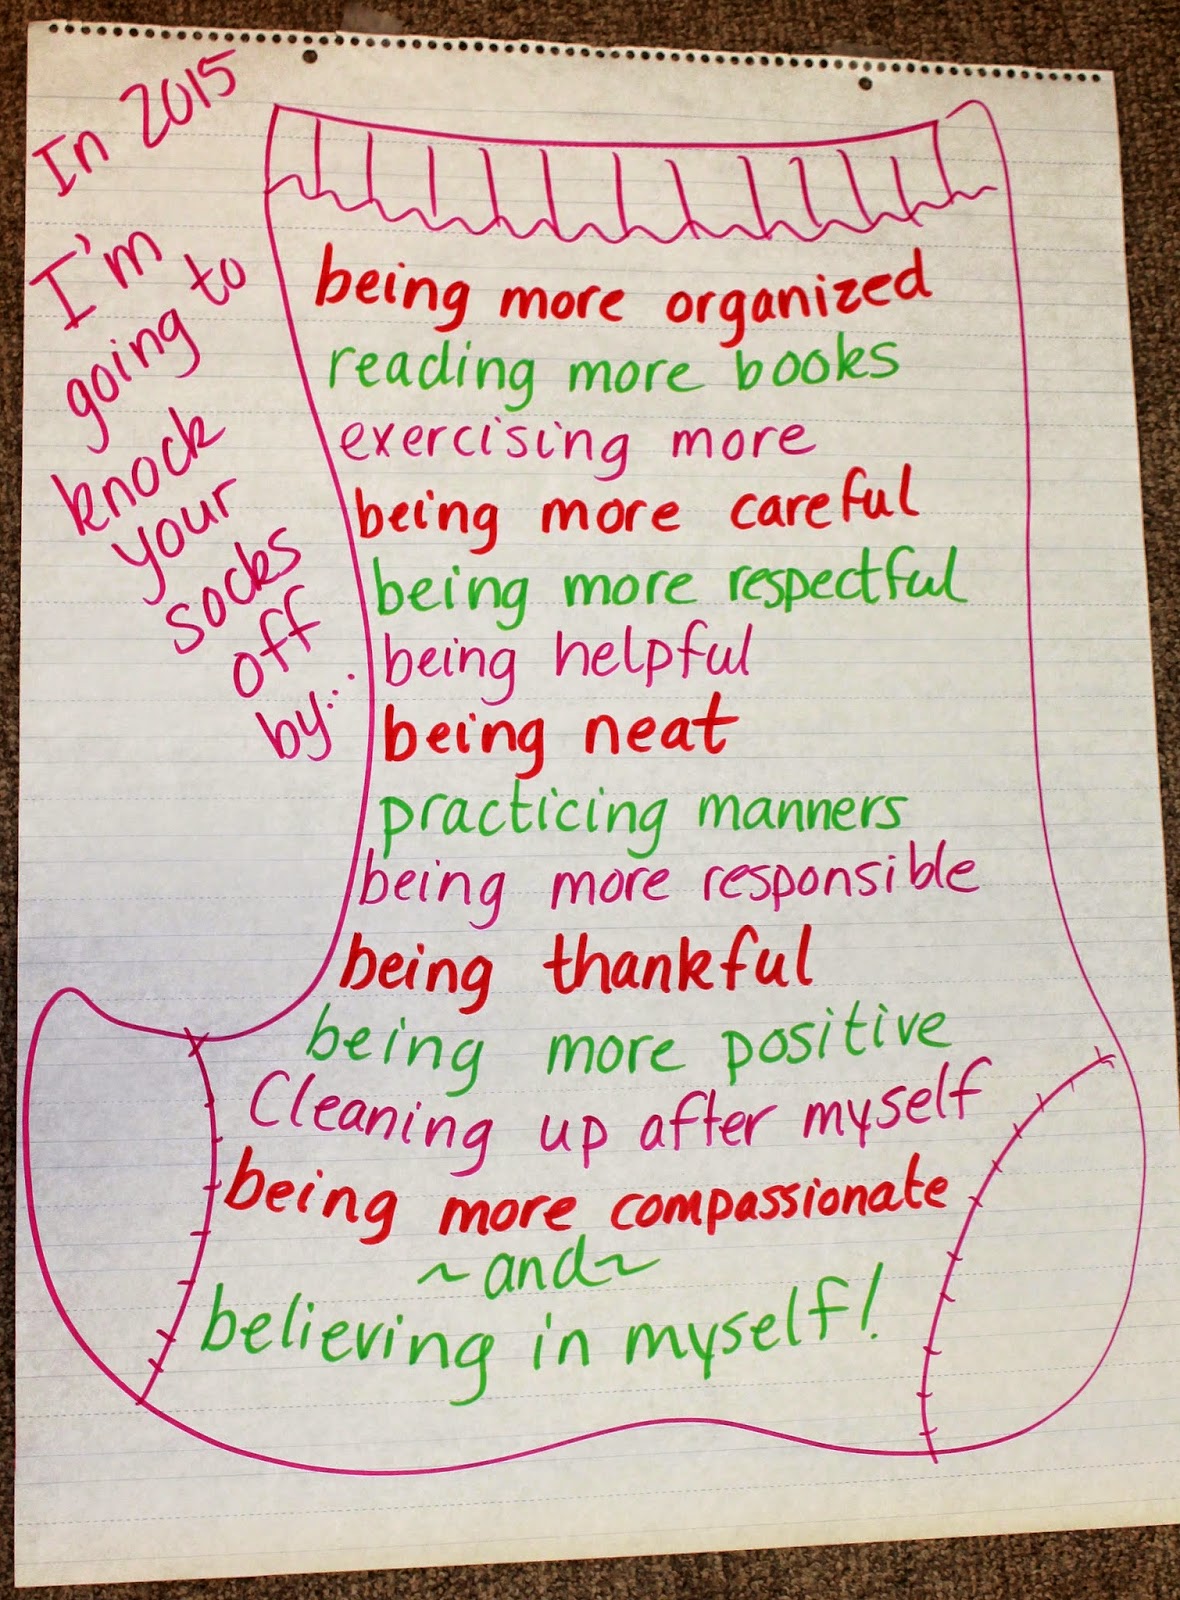 In 2015
I'm
going to
knock
your
socks
off
by...
being more organized
reading more books
exercising more
being more careful
being more respectful
being helpful
being neat
practicing manners
being more responsible
being thankful
being more positive
Cleaning up after myself
being more compassionate
~and~
believing in myself!